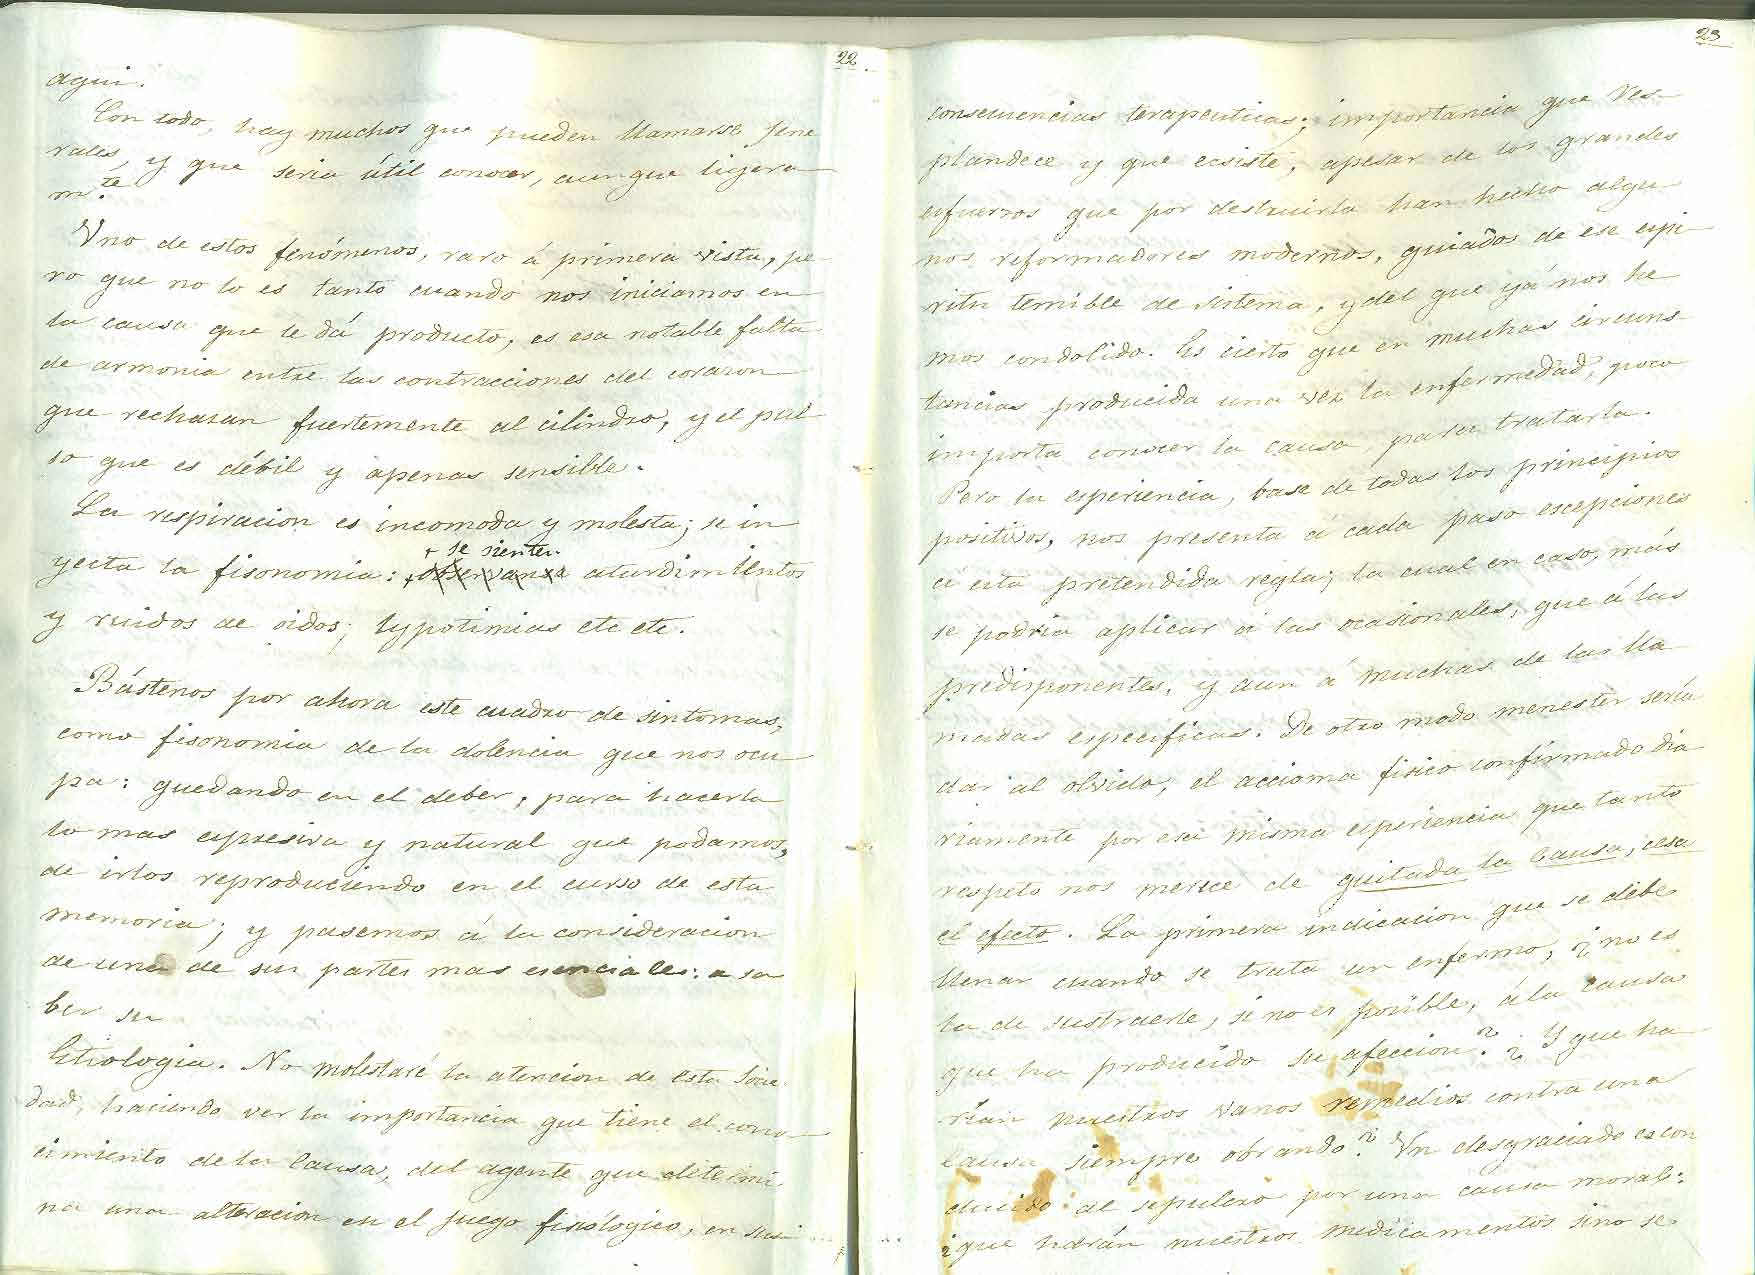 22
aqui.
Con todo, hay muchos que pueden llamarse jene
rales, y que seria útil conocer, aunque lijera
m.te
Uno de estos fenómenos, raro á primera vista, pe
ro que no lo es tanto cuando nos iniciamos en
la causa que le dá producto, es esa notable falta
de armonia entre las contracciones del corazon
que rechasan fuertemente al cilindro, y el pul
so que es débil y apenas sensible.
La respiracion es incomoda y molesta; se in
+ se sienten
yecta la fisonomia: + observanse aturdimientos
y ruidos de oidos; lypotimias etc etc.
Bástenos por ahora este cuadro de sintomas,
como fisonomia de la dolencia que nos ocu
pa: quedando en el deber, para hacerla
lo mas espresiva y natural que podamos,
de irlos reproduciendo en el curso de esta
memoria; y pasemos á la consideracion
de una de sus partes mas esenciales: a sa
ber su
Etiologia. No molestaré la atencion de esta Socie
dad, haciendo ver la importancia que tiene el cono
cimiento de la causa, del agente que determi
na una alteracion en el juego fisiólogico, en sus
23
consecuencias terapeuticas; importancia que res
plandece y que ecsiste, apesar de los grandes
esfuerzos que por destruirla han hecho algu
nos reformadores modernos, guiados de ese espi
ritu temible de sistema, y del que yá nos he
mos condolido. Es cierto que en muchas circuns
tancias producida una vez la enfermedad, poco
importa conocer la causa para tratarla.
Pero la esperiencia, base de todos los principios
positivos, nos presenta á cada paso escepciones
á esta pretendida regla; la cual en caso, más
se podria aplicar á las ocasionales, que á las
predisponentes, y aun á muchas de las lla
madas especificas. De otro modo menester sería
dar al olvido, el accioma fisico confirmado dia
riamente por esa misma esperiencia que tanto
respeto nos merece de quitada la causa, cesa
el efecto. La primera indicacion que se debe
llenar cuando se trata un enfermo, ¿no es
la de sustraerle, si no es posible, á la causa
que ha producido su afeccion? ¿Y que ha
rian nuestros vanos remedios contra una
causa siempre obrando? Un desgraciado es con
ducido al sepulcro por una causa moral:
¿que harán nuestros medicamentos sino se